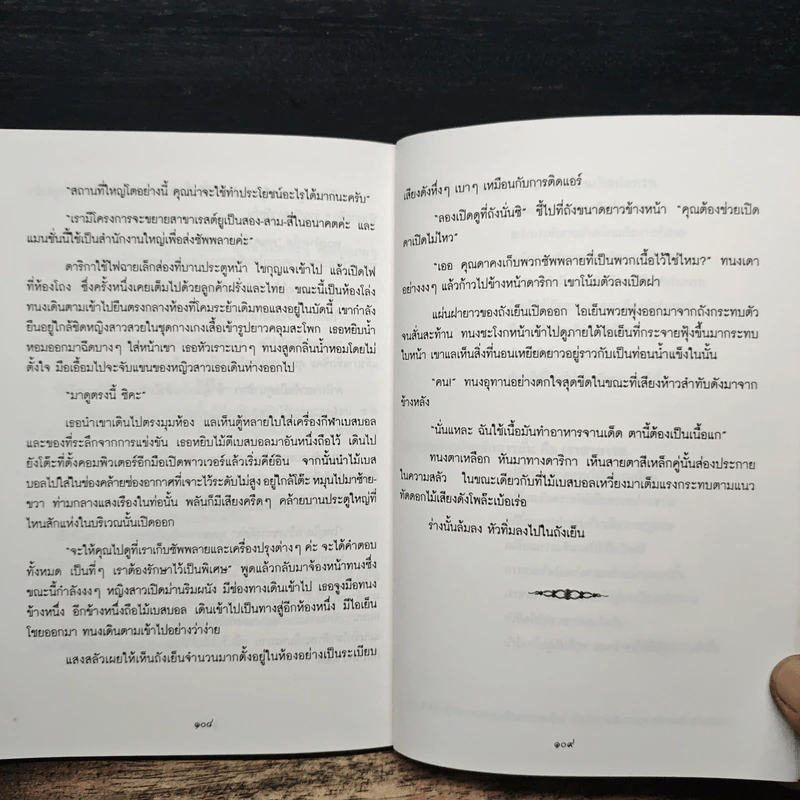 "สถานที่ใหญ่โตอย่างนี้ คุณน่าจะใช้ทำประโยชน์อะไรได้มากนะครับ"
"เรามีโครงการจะขยายสาขาเรสต์ยูเป็นสอง-สาม-สี่ในอนาคตค่ะ และ
แมนชั่นนี้ใช้เป็นสำนักงานใหญ่เพื่อส่งซัพพลายค่ะ"
ดาริกาใช้ไฟฉายเล็กส่องที่บานประตูหน้า ไขกุญแจเข้าไป แล้วเปิดไฟ
ที่ห้องโถง ซึ่งครั้งหนึ่งเคยเต็มไปด้วยลูกค้าฝรั่งและไทย ขณะนี้เป็นห้องโล่ง
ทนงเดินตามเข้าไปยืนตรงกลางห้องที่โคมระย้าเดิมทอแสงอยู่ในบัดนี้ เขากำลัง
ยืนอยู่ใกล้ชิดหญิงสาวสวยในชุดกางเกงเสื้อเข้ารูปยาวคลุมสะโพก เธอหยิบน้ำ
หอมออกมาฉีดบางๆ ใส่หน้าเขา เธอหัวเราะเบาๆ ทนงสูดกลิ่นน้ำหอมโดยไม่
ตั้งใจ มือเอื้อมไปจะจับแขนของหญิงสาวเธอเดินห่างออกไป
"มาดูตรงนี้ ซิคะ"
เธอนำเขาเดินไปตรงมุมห้อง แลเห็นตู้หลายใบใส่เครื่องกีฬาเบสบอล
และของที่ระลึกจากการแข่งขัน เธอหยิบไม้ตีเบสบอลมาอันหนึ่งถือไว้ เดินไป
ยังโต๊ะที่ตั้งคอมพิวเตอร์อีกมือเปิดพาวเวอร์แล้วเริ่มคีย์อิน จากนั้นนำไม้เบส
บอลไปใส่ในช่องคล้ายช่องอากาศที่เจาะไว้ระดับไม่สูง อยู่ใกล้โต๊ะ หมุนไปมาซ้าย-
ขวา ท่ามกลางแสงเรืองในท่อนั้น พลันก็มีเสียงครืดๆ คล้ายบานประตูใหญ่ที่
ไหนสักแห่งในบริเวณนั้นเปิดออก
"จะให้คุณไปดูที่เราเก็บซัพพลายและเครื่องปรุงต่างๆ ค่ะ จะได้คำตอบ
ทั้งหมด เป็นที่ๆ เราต้องรักษาไว้เป็นพิเศษ" พูดแล้วกลับมาจ้องหน้าทนงซึ่ง
ขณะนี้กำลังงงๆ หญิงสาวเปิดม่านริมผนัง มีช่องทางเดินเข้าไป เธอจูงมือทนง
ข้างหนึ่ง อีกข้างหนึ่งถือไม้เบสบอล เดินเข้าไปเป็นทางสู่อีกห้องหนึ่ง มีไอเย็น
โชยออกมา ทนงเดินตามเข้าไปอย่างว่าง่าย
แสงสลัวเผยให้เห็นถังเย็นจำนวนมากตั้งอยู่ในห้องอย่างเป็นระเบียบ
๑๐๘
เสียงดังหึ่งๆ เบาๆ เหมือนกับการติดแอร์
"ลองเปิดดูที่ถังนั่นซิ" ชี้ไปที่ถังขนาดยาวข้างหน้า "คุณต้องช่วยเปิด
ดาเปิดไม่ไหว"
"เออ คุณดาคงเก็บพวกซัพพลายที่เป็นพวกเนื้อไว้ใช่ไหม?" ทนงเดา
อย่างงงๆ แล้วก้าวไปข้างหน้าดาริกา เขาโน้มตัวลงเปิดฝา
แผ่นฝายาวของถังเย็นเปิดออก ไอเย็นพวยพุ่งออกมาจากถังกระทบตัว
จนสั่นสะท้าน ทนงชะโงกหน้าเข้าไปดูภายใต้ไอเย็นที่กระจายฟุ้งขึ้นมากระทบ
ใบหน้า เขาแลเห็นสิ่งที่นอนเหยียดยาวอยู่ราวกับเป็นท่อนน้ำแข็งในนั้น
"คน!" ทนงอุทานอย่างตกใจสุดขีดในขณะที่เสียงห้าวสำทับดังมาจาก
ข้างหลัง
"นั่นแหละ ฉันใช้เนื้อมันทำอาหารจานเด็ด ตานี้ต้องเป็นเนื้อแก"
ทนงตาเหลือก หันมาทางดาริกา เห็นสายตาสีเหล็กคู่นั้นส่องประกาย
ในความสลัว ในขณะเดียวกับที่ไม้เบสบอลเหวี่ยงมาเต็มแรงกระทบตามแนว
ทัดดอกไม้เสียงดังโพล๊ะเบ้อเร่อ
ร่างนั้นล้มลง หัวทิ่มลงไปในถังเย็น
๑๐๙